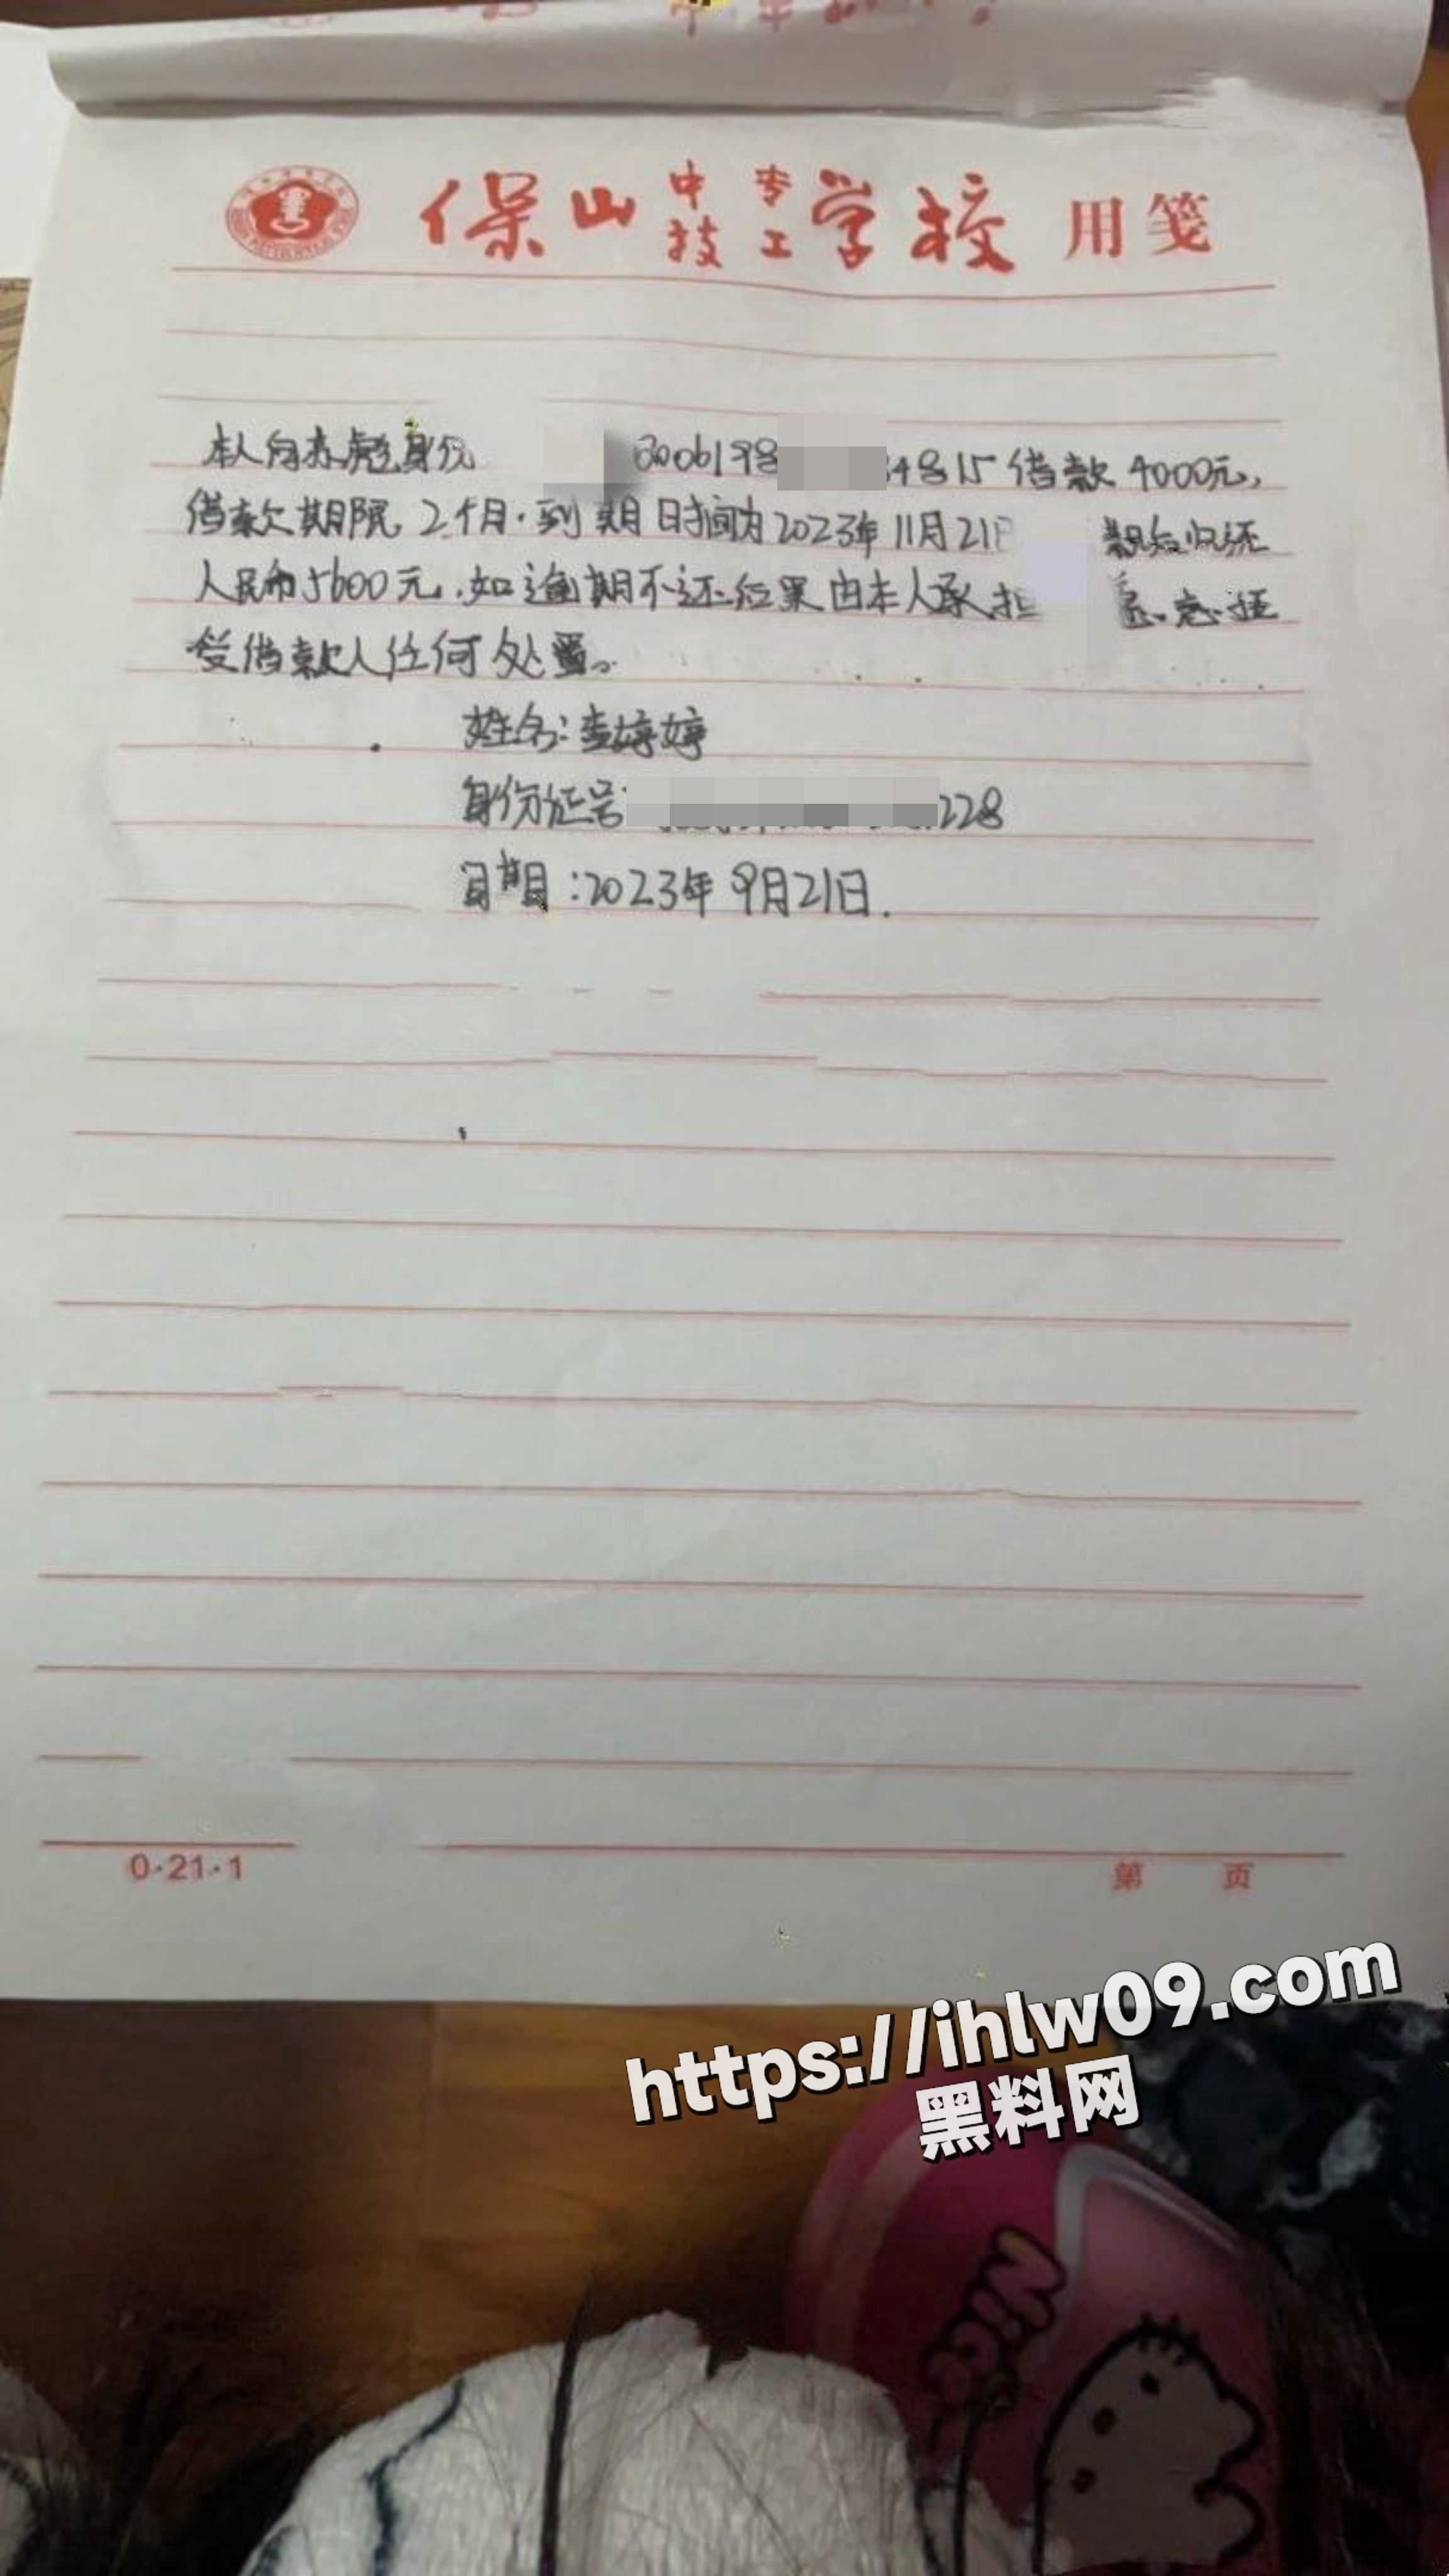 保山中专技工学校用笺
本人向 彪身份 3006198 4815借款4000元,
借款期限2个月.到期日时间为2023年11月21日 归还
人民币5600元.如逾期不还后果由本人承担 愿意接
受借款人任何处置。
姓名:李婷婷
身份证号 228
日期:2023年9月21日.
0·21·1
第 页
https://ihlw09.com
黑料网
Nice